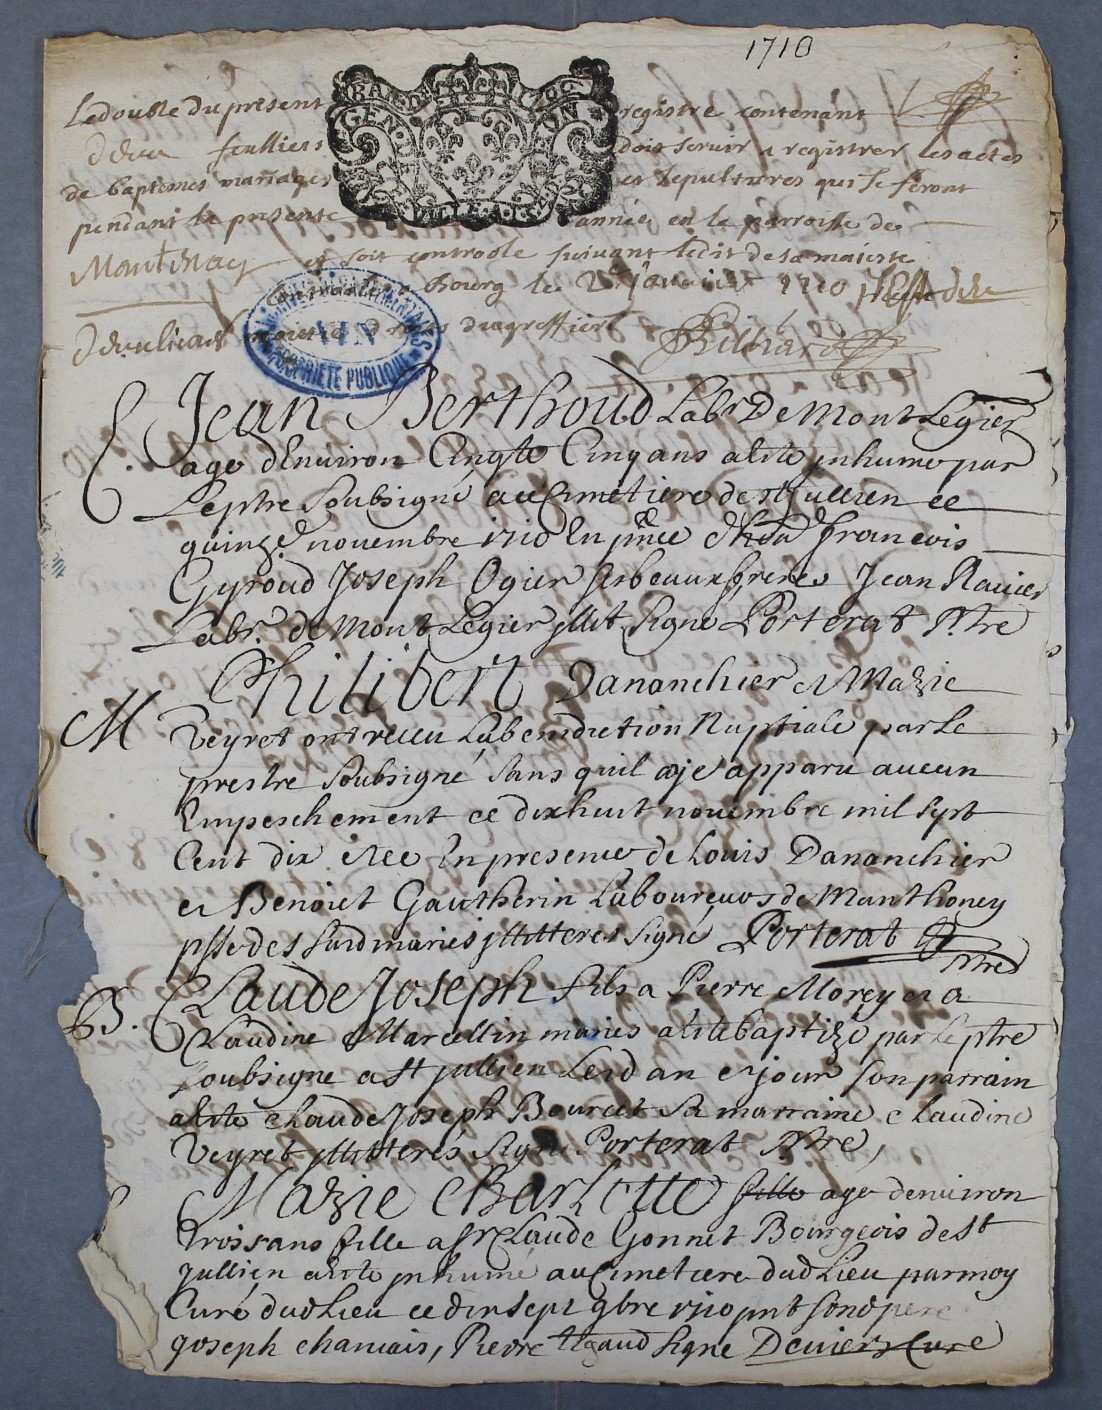 1710
Le double du present registre contenant
feulliers dois servir a registrer les actes
de baptemes mariages et sepultures qui se feront
pendant la presente année en la parroisse de
et soit controole suivant ledit de sa majeste
Bourg le 1710
GENE ON
ARCHIVES DEPARTEMENTALES
AIN
PROPRIÉTÉ PUBLIQUE
S. Jean Berthoud Labr. De Mont Legier
age dEnviron Cinqte Cinq ans a ete inhume par
Le ptre soubsigné au Cimetiere de st Jullien ce
quinze novembre 1710 En pnce francois
Gyroud Joseph Ogier ses beaux freres Jean Ravier
Labr. de Mont Legier illit Signe Porterat Ptre
M Philibert Dananchier et Marie
Veyret ont receu La benediction Nuptiale par Le
prestre soubsigné sans quil aje apparu aucun
Empeschement ce dixhuit novembre mil sept
Cent dix En presence de Louis Dananchier
et Benoiet Gautherin Laboureurs de
des susd mariés illitteres Signé Porterat
Ptre
B. Claude Joseph fils a Pierre Morey et a
Claudine Marcellin mariés a ete baptizé par Le ptre
soubsigne a st jullien Lesd an et jour son parrain
a ete Claude Joseph Bourcet Sa marraine Claudine
Veyret illitterés Signe Porterat Ptre
Marie Charlotte fille age denviron
trois ans fille a sr Claude Gonnet Bourgeois de St
jullien a ete inhume au Cimetiere dud Lieu par moy
Curé dud Lieu ce dix sept 9bre 1710 pnt son d pere
joseph chanvais, Pierre Signe Curé